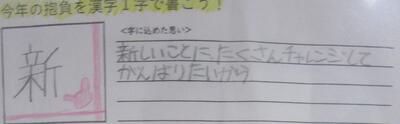 今年の抱負を漢字1字で書こう！
<字に込めた思い>
新
新しいことに、たくさんチャレンジして
がんばりたいから